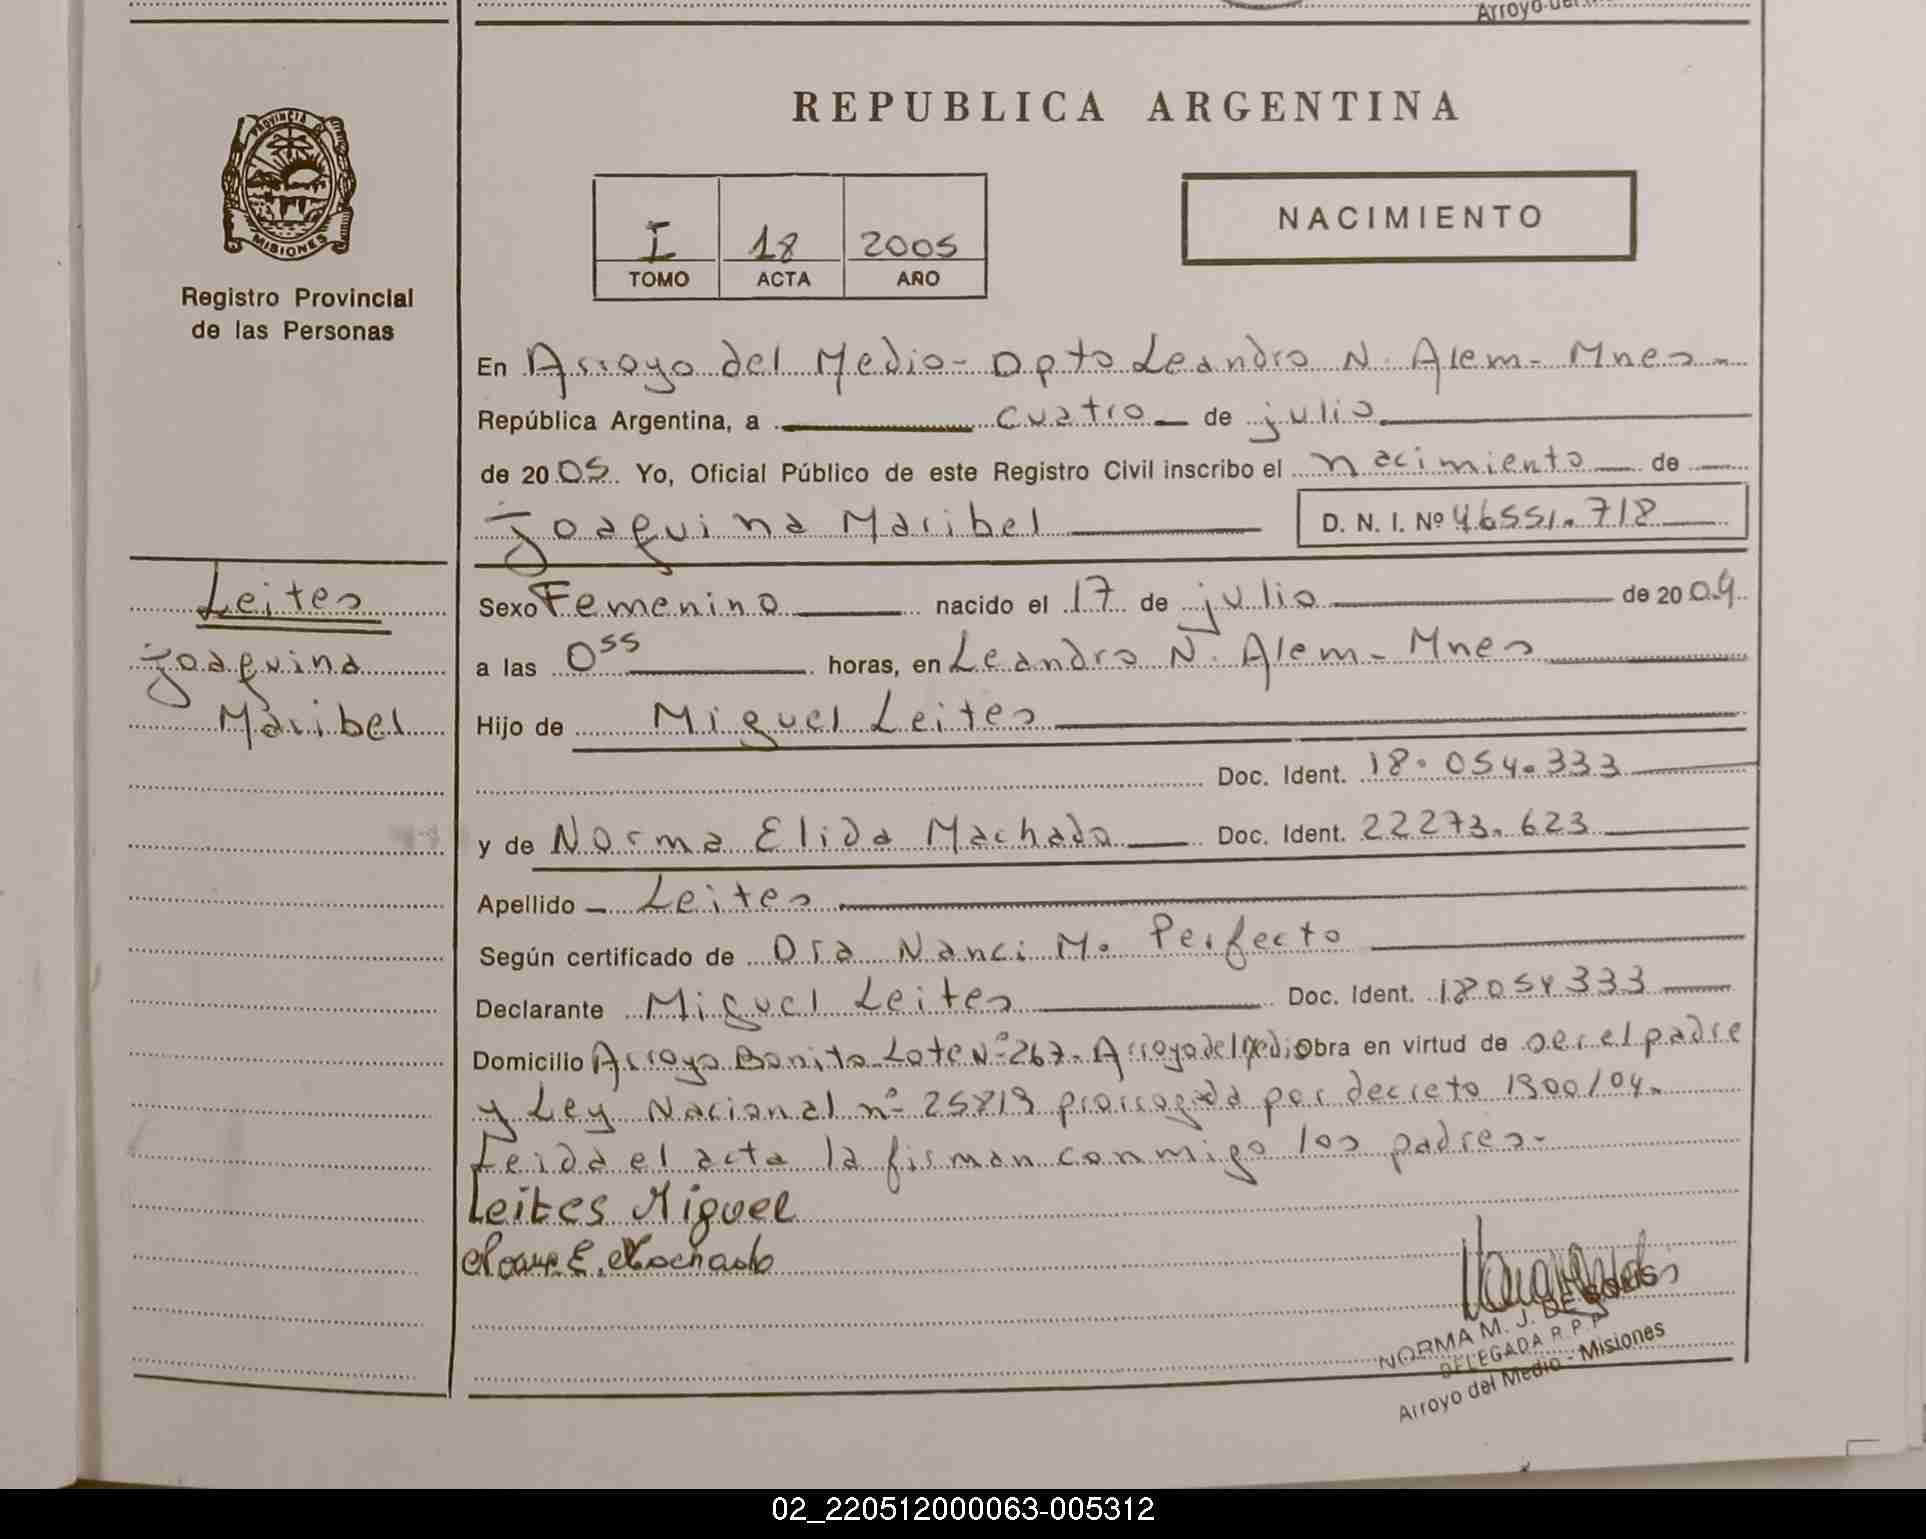 Arroyo del
REPUBLICA ARGENTINA
PROVINCIA DE
MISIONES
Registro Provincial
de las Personas
I 18 2005
TOMO ACTA AÑO
NACIMIENTO
En Arroyo del Medio - Dpto Leandro N. Alem - Mnes -
República Argentina, a cuatro de julio
de 2005. Yo, Oficial Público de este Registro Civil inscribo el nacimiento de
Joaquina Maribel D. N. I. Nº 46551.718
Leites
Joaquina
Maribel
Sexo Femenino nacido el 17 de julio de 2004
a las 0⁵⁵ horas, en Leandro N. Alem - Mnes
Hijo de Miguel Leites
Doc. Ident. 18.054.333
y de Norma Elida Machado Doc. Ident. 22273.623
Apellido Leites
Según certificado de Dra Nanci M. Perfecto
Declarante Miguel Leites Doc. Ident. 18054333
Domicilio Arroyo Bonito Lote Nº 267 - Arroyo del Medio Obra en virtud de ser el padre
y Ley Nacional nº 25819 prorrogada por decreto 1900/04.
Leida el acta la firman conmigo los padres -
Leites Miguel
E. Machado
NORMA M. J. DE
DELEGADA R.P.P
Arroyo del Medio - Misiones
02_220512000063-005312